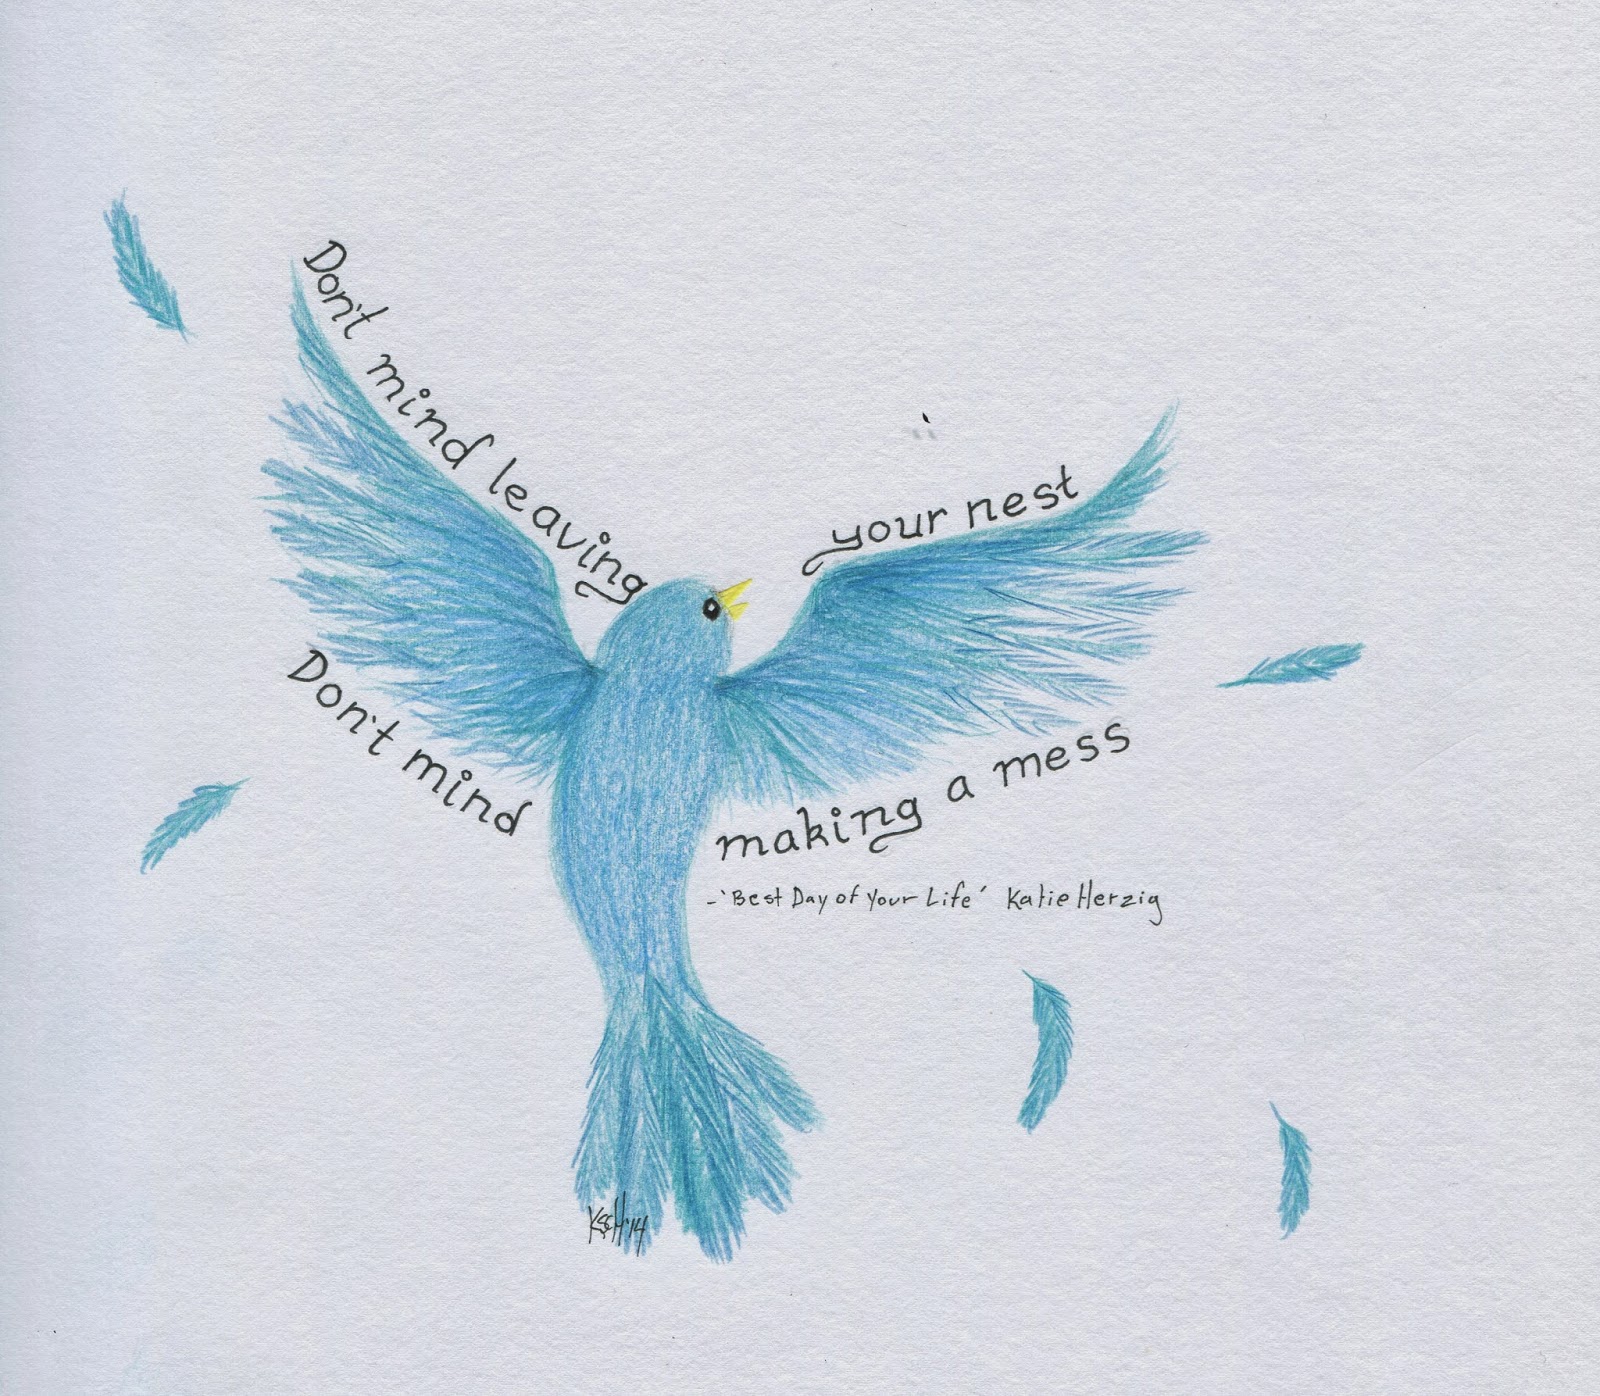 Don't mind leaving
your nest
Don't mind
making a mess
-'Best Day of Your Life' Katie Herzig